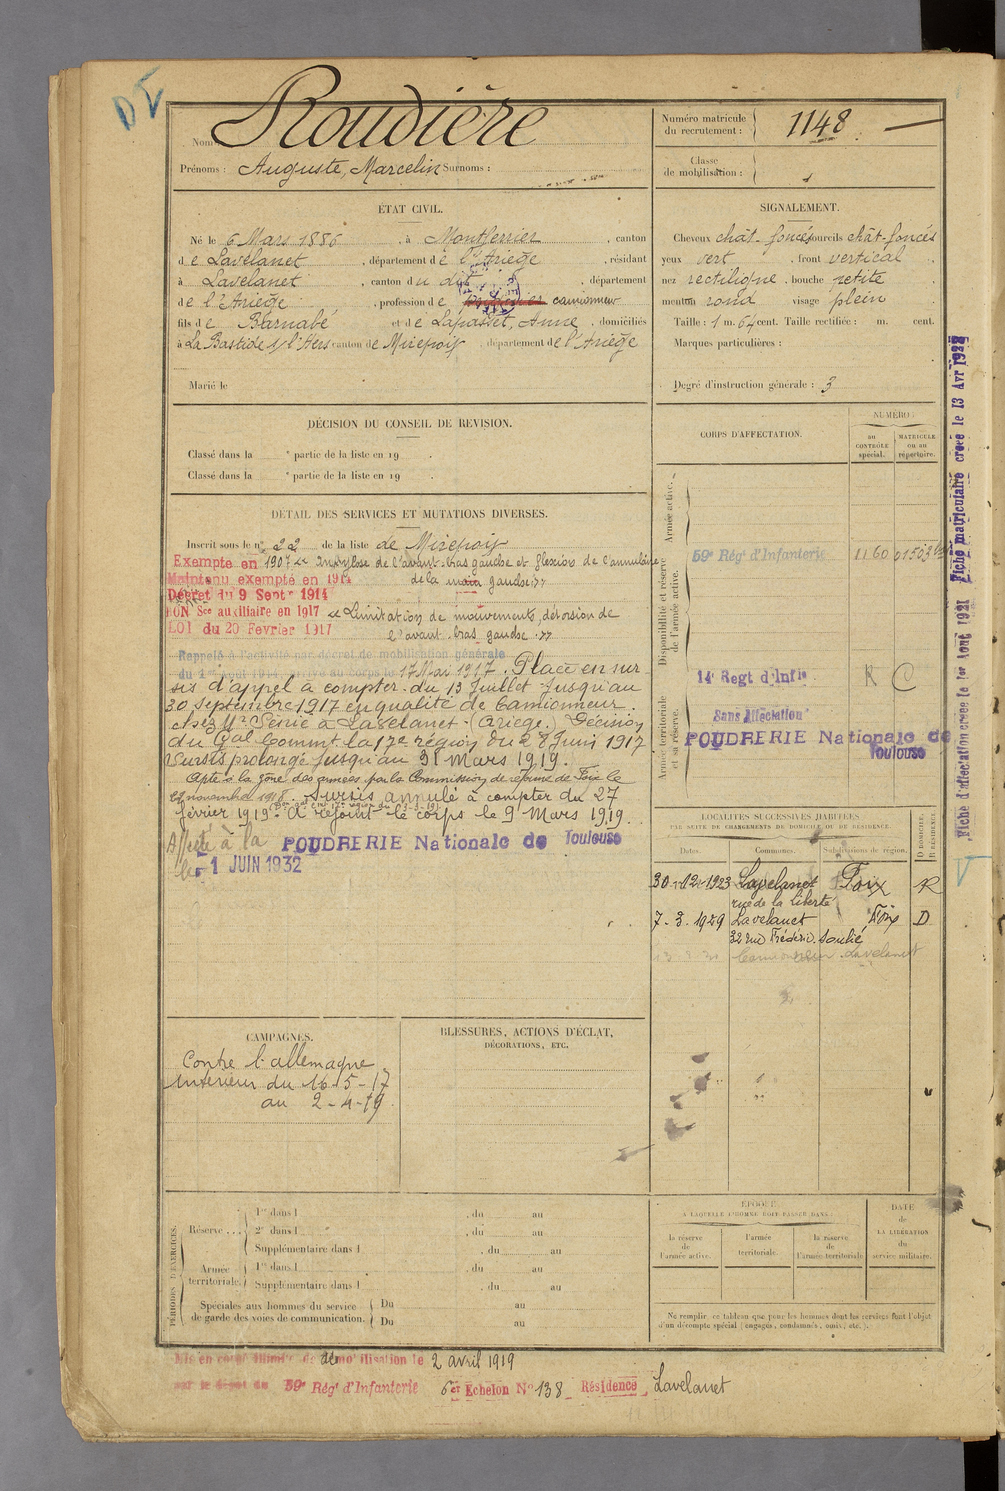 DE
Nom : Roudière
Prénoms : Auguste, Marcelin Surnoms :
Numéro matricule
du recrutement :
1148
Classe
de mobilisation :
ÉTAT CIVIL.
Né le 6 Mars 1886, à Montferrier, canton
de Lavelanet, département de l'Ariège, résidant
à Lavelanet, canton du dit, département
de l'Ariège, profession de camionneur
fils de Barnabé et de Lapasset, Anne, domiciliés
à La Bastide s/ l'Hers canton de Mirepoix, département de l'Ariège
Marié le
SIGNALEMENT.
Cheveux chât-foncés sourcils chât-foncés
yeux vert, front vertical
nez rectiligne, bouche petite
menton rond visage plein
Taille : 1 m. 64 cent. Taille rectifiée : m. cent.
Marques particulières :
Degré d'instruction générale : 3
DÉCISION DU CONSEIL DE REVISION.
Classé dans la e partie de la liste en 19 .
Classé dans la e partie de la liste en 19 .
CORPS D'AFFECTATION.
NUMÉRO
au
CONTRÔLE
spécial.
MATRICULE
ou au
répertoire.
DÉTAIL DES SERVICES ET MUTATIONS DIVERSES.
Inscrit sous le n° 22 de la liste de Mirepoix
Exempté en 1907 « Ankylose de l'avant-bras gauche et flexion de l'annulaire
Maintenu exempté en 1914 de la main gauche »
Décret du 9 Septre 1914
BON Sce auxiliaire en 1917 « Limitation de mouvements, détorsion de
LOI du 20 Fevrier 1917 l'avant-bras gauche »
Rappelé à l'activité par décret de mobilisation générale
du 1er Août 1914. Arrivé au corps le 17 Mai 1917. Placé en sur-
sis d'appel à compter du 13 Juillet jusqu'au
30 septembre 1917 en qualité de Camionneur
chez Mr à Lavelanet (Ariège.) Décision
du Gal Commt la 17e région du 28 Juin 1917
Sursis prolongé jusqu'au 31 Mars 1919.
Apte à la zone des armées par la Commission de réforme de Foix le
novembre 1918. Sursis annulé à compter du 27
février 1919. A rejoint le corps le 9 Mars 1919.
Affecté à la POUDRERIE Nationale de Toulouse
le 1 JUIN 1932
Armée active.
Disponibilité et réserve
de l'armée active.
59e Régt d'Infanterie 1160 01503
Armée territoriale
et sa réserve.
14e Regt d'Infie R C
Sans Affectation
POUDRERIE Nationale de
Toulouse
LOCALITÉS SUCCESSIVES HABITÉES
PAR SUITE DE CHANGEMENTS DE DOMICILE OU DE RÉSIDENCE.
Dates. Communes. Subdivisions de région. D DOMICILE, R RÉSIDENCE
30-12-1923 Lavelanet Foix R
rue de la liberté
7-3-1929 Lavelanet Foix D
32 rue Frédéric Soulié
Lavelanet
CAMPAGNES.
Contre l'allemagne
Intérieur du 16-5-17
au 2-4-19
BLESSURES, ACTIONS D'ÉCLAT,
DÉCORATIONS, ETC.
PÉRIODES D'EXERCICES.
Réserve.... 1re dans l , du au
2e dans l , du au
Supplémentaire dans l , du au
Armée
territoriale. 1re dans l , du au
Supplémentaire dans l , du au
Spéciales aux hommes du service
de garde des voies de communication. Du au
Du au
ÉPOQUE
À LAQUELLE L'HOMME DOIT PASSER DANS :
la réserve
de
l'armée active.
l'armée
territoriale.
la réserve
de
l'armée territoriale
DATE
de
LA LIBÉRATION
du
service militaire.
Ne remplir ce tableau que pour les hommes dont les services font l'objet
d'un décompte spécial (engagés, condamnés, omis, etc.).
Mis en congé illimité de démobilisation le 2 avril 1919
par le dépôt du 59e Régt d'Infanterie 6er Echelon N° 138 Résidence Lavelanet
Fiche d'affectation créée le 1er Août 1921 Fiche matriculaire créée le 13 Avr 1922
V